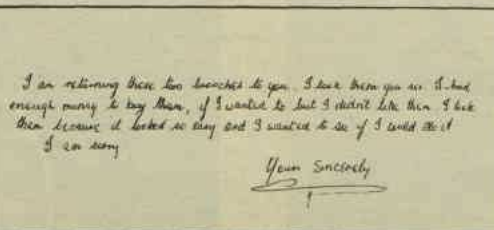 I am returning these two broaches to you. I took them you see I had
enough money to buy them, if I wanted to but I didn't like them I took
them because it looked so easy and I wanted to see if I could do it
I am sorry
Yours Sincerely